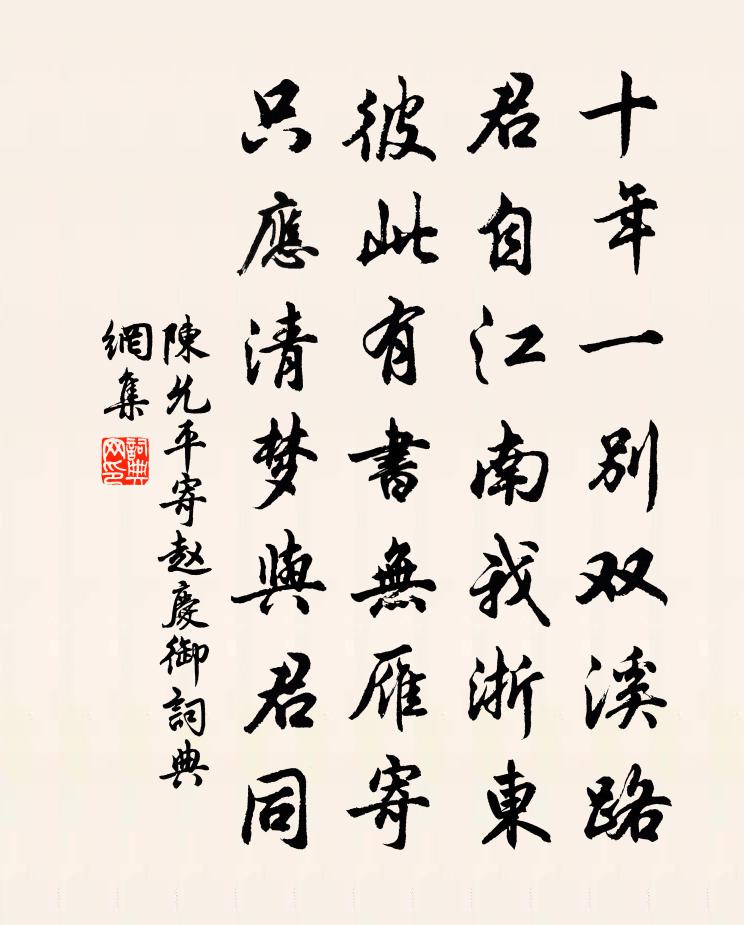 十年一别双溪路
君自江南我浙東
彼此有書無雁寄
只應清梦與君同
陳允平寄赵慶御詞典
網集
詞典网印